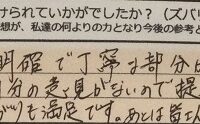 けられていかがでしたか？（ズバリ
想が、私達の何よりの力となり今後の参考と
明確で丁寧な部分に
分の差し戻がないので提
も満足です。あとは皆さん